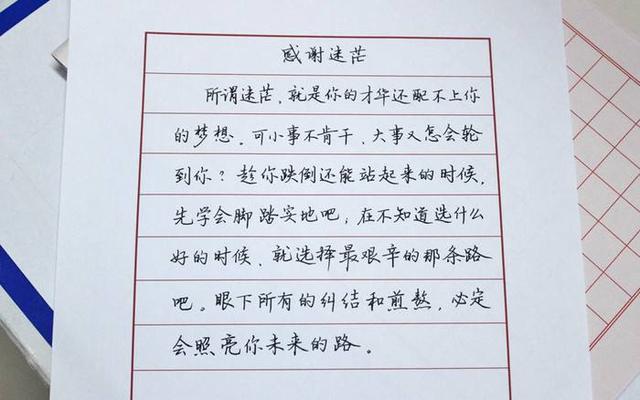 感谢迷茫
所谓迷茫,就是你的才华还配不上你
的梦想。可小事不肯干、大事又怎会轮
到你?趁你跌倒还能站起来的时候,
先学会脚踏实地吧,在不知道选什么
好的时候、就选择最艰辛的那条路
吧。眼下所有的纠结和煎熬,必定
会照亮你未来的路。